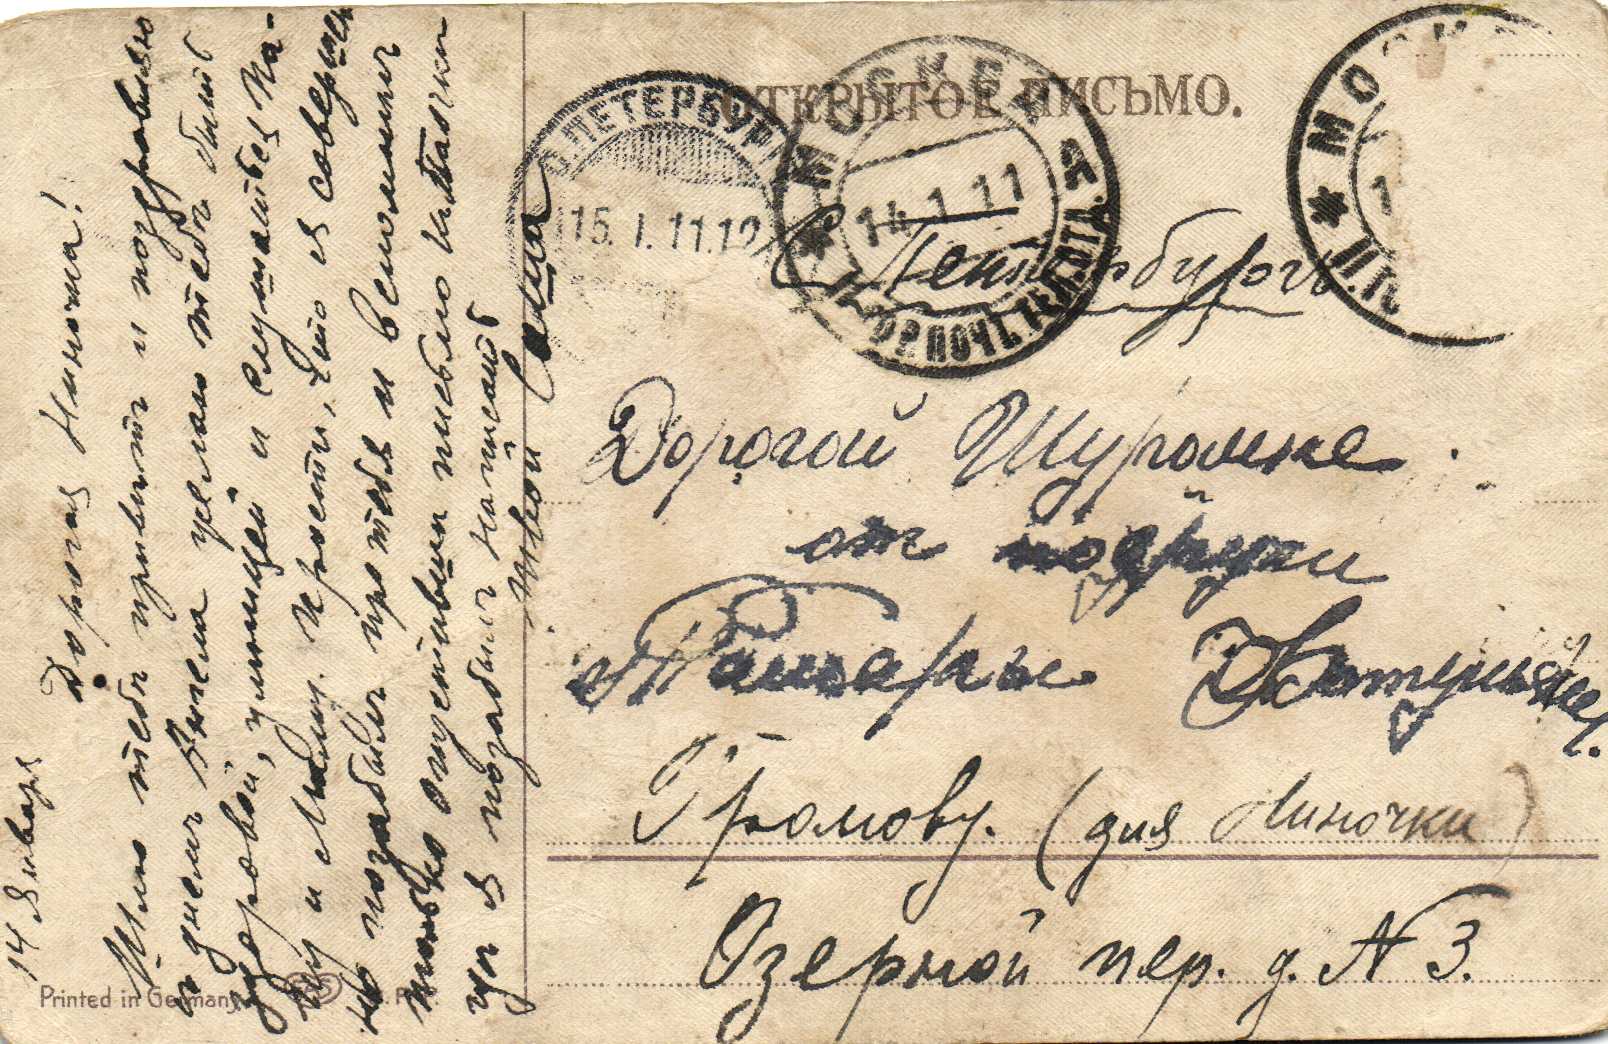 ОТКРЫТОЕ ПИСЬМО.
С.ПЕТЕРБУРГ
15. 1. 11.12
МОСКВА
14.1.11
ГОР.ПОЧТ.ТЕЛ.ОТД.
МОСК
1
II.Г
С Петербургъ
Дорогой
от подруги
Громову. (для Ниночки)
Озерной пер. д. № 3.
14 Января
Дорогая Ниночка!
Шлю тебѣ привѣтъ и поздравляю
с днемъ Ангела желаю тебѣ быть
здоровой, умницей и слушаться Па-
пу и Маму. прости, что я совершен
но позабылъ про тебя и вспомнилъ
только опустивши письмо Наташки
я позабылъ написать
твой Саша
Printed in Germany